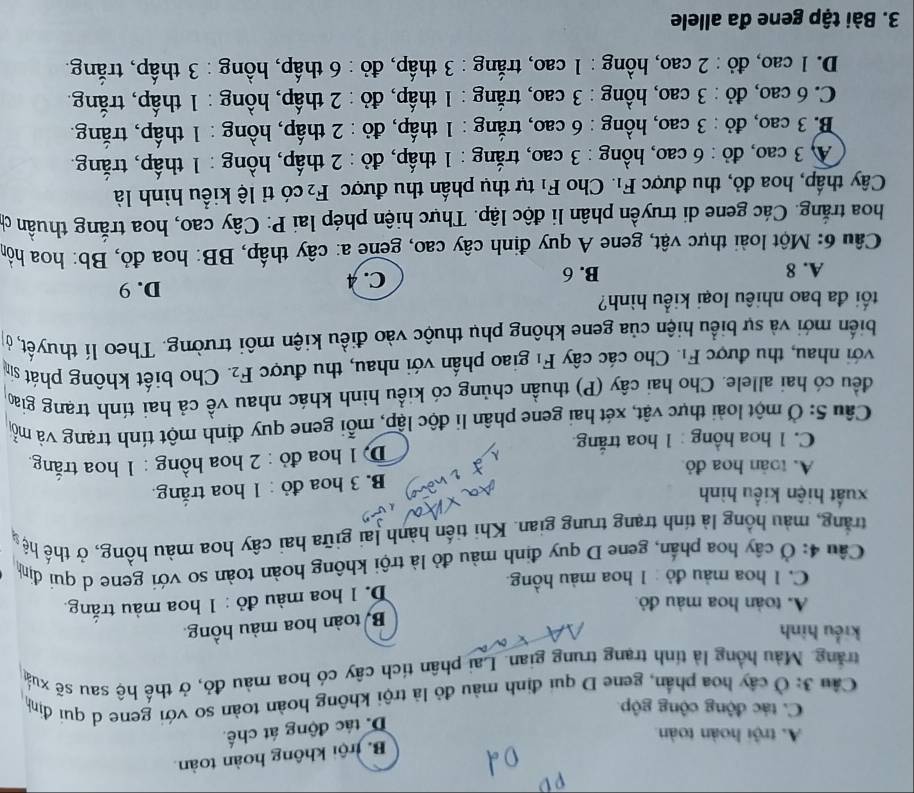 DD
Dd
A. trội hoàn toàn.
B. trội không hoàn toàn.
C. tác động cộng gộp.
D. tác động át chế.
Câu 3: Ở cây hoa phấn, gene D qui định màu đỏ là trội không hoàn toàn so với gene d qui định
trắng. Màu hồng là tính trạng trung gian. Lai phân tích cây có hoa màu đỏ, ở thế hệ sau sẽ xuất
kiểu hình
AA x aa
A. toàn hoa màu đỏ.
B. toàn hoa màu hồng.
C. 1 hoa màu đỏ : 1 hoa màu hồng.
D. 1 hoa màu đỏ : 1 hoa màu trắng.
Câu 4: Ở cây hoa phấn, gene D quy định màu đỏ là trội không hoàn toàn so với gene d qui định
trắng, màu hồng là tính trạng trung gian. Khi tiến hành lai giữa hai cây hoa màu hồng, ở thế hệ
xuất hiện kiểu hình
Aa x Aa
A. toàn hoa đỏ.
B. 3 hoa đỏ : 1 hoa trắng.
C. 1 hoa hồng : 1 hoa trắng.
D. 1 hoa đỏ : 2 hoa hồng : 1 hoa trắng.
Câu 5: Ở một loài thực vật, xét hai gene phân li độc lập, mỗi gene quy định một tính trạng và mỗi
đều có hai allele. Cho hai cây (P) thuần chủng có kiểu hình khác nhau về cả hai tính trạng giao
với nhau, thu được F₁. Cho các cây F₁ giao phấn với nhau, thu được F₂. Cho biết không phát sinh
biến mới và sự biểu hiện của gene không phụ thuộc vào điều kiện môi trường. Theo lí thuyết, ở
tối đa bao nhiêu loại kiểu hình?
A. 8
B. 6
C. 4
D. 9
Câu 6: Một loài thực vật, gene A quy định cây cao, gene a: cây thấp, BB: hoa đỏ, Bb: hoa hồn
hoa trắng. Các gene di truyền phân li độc lập. Thực hiện phép lai P: Cây cao, hoa trắng thuần ch
Cây thấp, hoa đỏ, thu được F₁. Cho F₁ tự thụ phấn thu được F₂ có tỉ lệ kiểu hình là
A. 3 cao, đỏ : 6 cao, hồng : 3 cao, trắng : 1 thấp, đỏ : 2 thấp, hồng : 1 thấp, trắng.
B. 3 cao, đỏ : 3 cao, hồng : 6 cao, trắng : 1 thấp, đỏ : 2 thấp, hồng : 1 thấp, trắng.
C. 6 cao, đỏ : 3 cao, hồng : 3 cao, trắng : 1 thấp, đỏ : 2 thấp, hồng : 1 thấp, trắng.
D. 1 cao, đỏ : 2 cao, hồng : 1 cao, trắng : 3 thấp, đỏ : 6 thấp, hồng : 3 thấp, trắng.
3. Bài tập gene đa allele